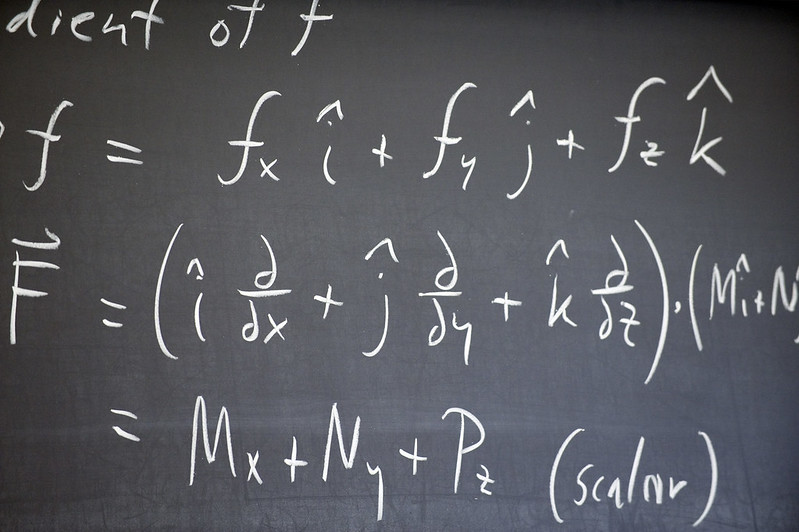 dient of f
f = fₓ î + f_y ĵ + f_z k̂
F⃗ = (î ∂/∂x + ĵ ∂/∂y + k̂ ∂/∂z) · (Mî + N
= Mₓ + N_y + P_z (scalar)